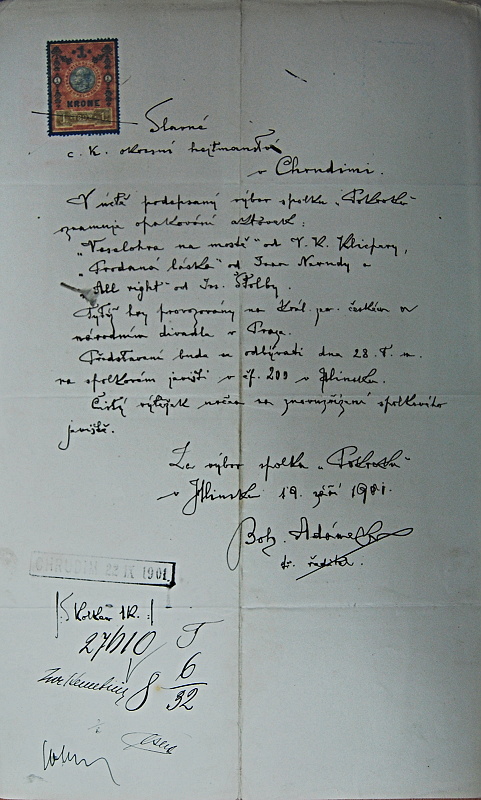 1
KRONE
Slavné
c. k. okresní hejtmanství
v Chrudimi.
V úctě podepsaný výbor spolku „Pokroku“
oznamuje opakování aktovek:
„Veselohra na mostě“ od V. K. Klicpery,
„Prodaná láska“ od Jana Nerudy a
„All right“ od Jos. Štolby.
Tyto hry provozovány na Král. zem. českém a
národním divadle v Praze.
Představení bude se odbývati dne 28. t. m.
na spolkovém jevišti v čp. 209 v Hlinsku.
Čistý výtěžek určen na znovuzřízení spolkového
jeviště.
Za výbor spolku „Pokroku“
v Hlinsku 19. září 1901.
Boh. Adámek
t. č. ředitel.
CHRUDIM 22 IX 1901
[: S kolkem 1K. :]
27610
8 6/32